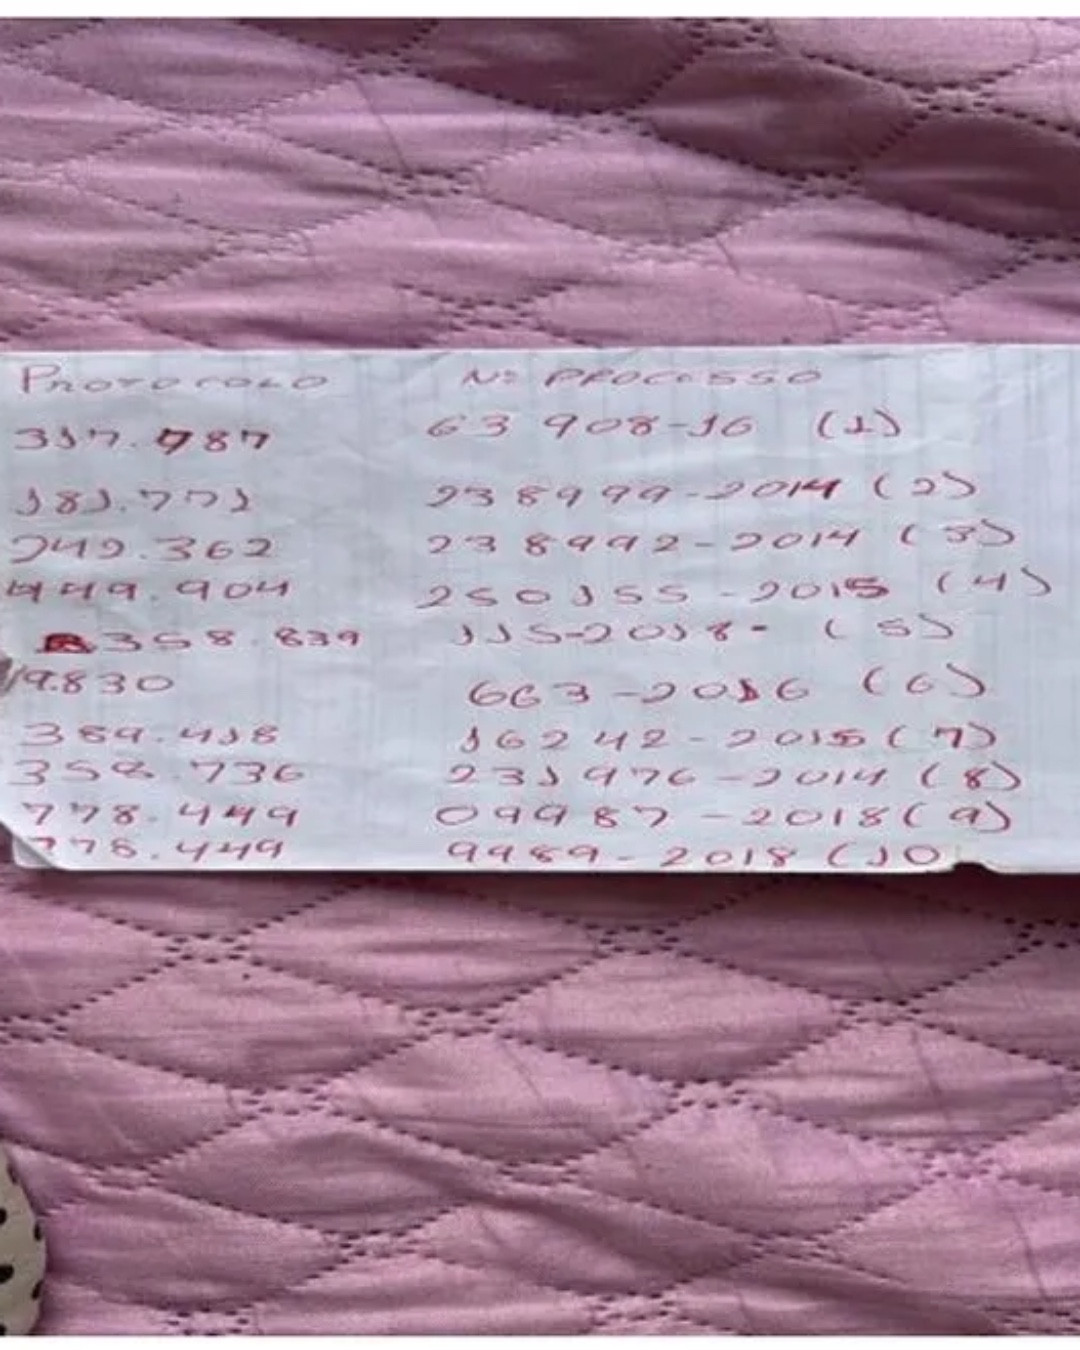 PROTOCOLO Nº PROCESSO
317.787 63 908-16 (1)
181.771 238999-2014 (2)
249.362 238992-2014 (3)
449.904 250155-2015 (4)
358.839 115-2018- (5)
19.830 663-2016 (6)
389.418 16242-2015 (7)
358.736 231976-2014 (8)
778.449 09987-2018 (9)
778.449 9989-2018 (10